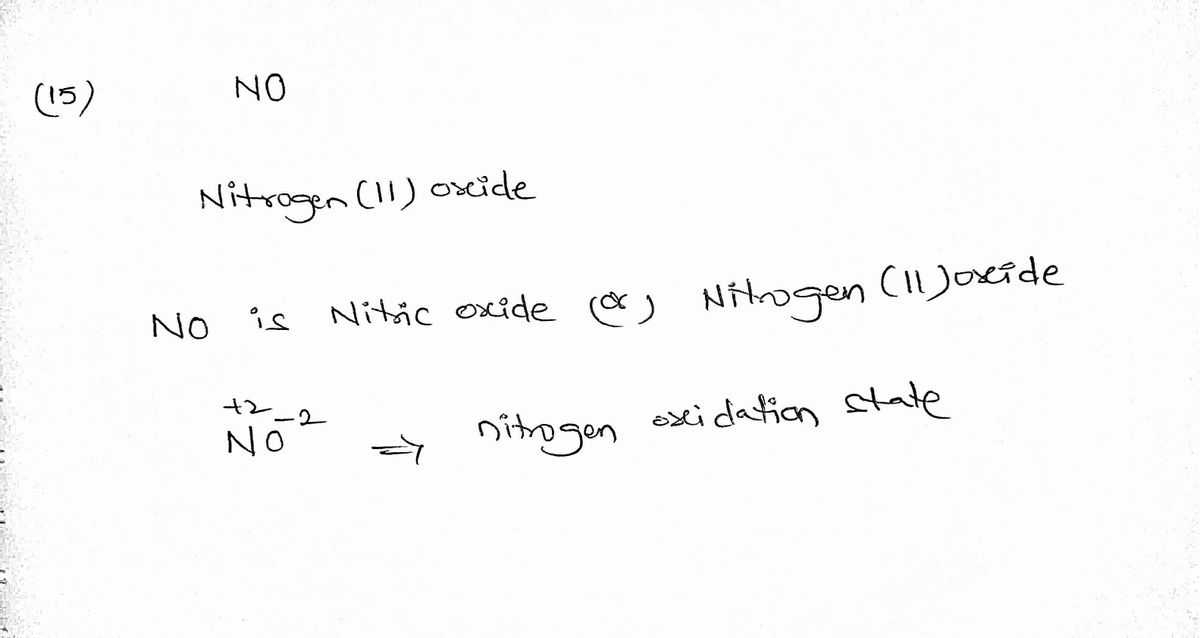 (15) NO
Nitrogen (II) oxide
NO is Nitric oxide (or) Nitrogen (II) oxide
+2 -2
NO ⇒ nitrogen oxidation state